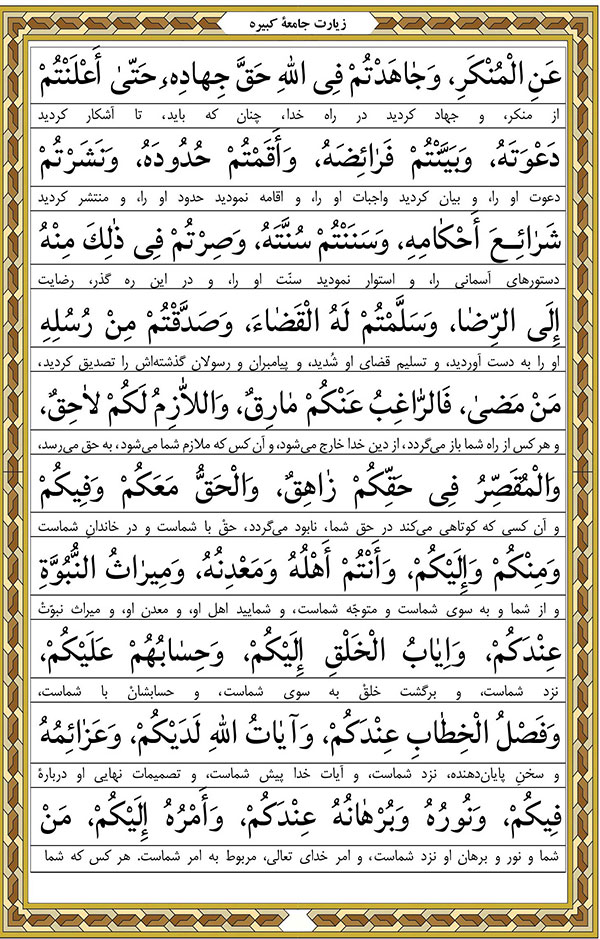 زیارت جامعهٔ کبیره
عَنِ الْمُنْكَرِ، وَجَاهَدْتُمْ فِی اللهِ حَقَّ جِهادِهِ، حَتّیٰ أَعْلَنْتُمْ
از منکر، و جهاد کردید در راه خدا، چنان که باید، تا آشکار کردید
دَعْوَتَهُ، وَبَیَّنْتُمْ فَرٰائِضَهُ، وَأَقَمْتُمْ حُدُودَهُ، وَنَشَرْتُمْ
دعوت او را، و بیان کردید واجبات او را، و اقامه نمودید حدود او را، و منتشر کردید
شَرٰائِعَ أَحْكٰامِهِ، وَسَنَنْتُمْ سُنَّتَهُ، وَصِرْتُمْ فِی ذٰلِكَ مِنْهُ
دستورهای آسمانی را، و استوار نمودید سنّت او را، و در این ره گذر، رضایت
إِلَی الرِّضٰا، وَسَلَّمْتُمْ لَهُ الْقَضٰاءَ، وَصَدَّقْتُمْ مِنْ رُسُلِهِ
او را به دست آوردید، و تسلیم قضای او شُدید، و پیامبران و رسولان گذشته‌اش را تصدیق کردید،
مَنْ مَضیٰ، فَالرّٰاغِبُ عَنْكُمْ مٰارِقٌ، وَاللّٰازِمُ لَكُمْ لاٰحِقٌ،
و هر کس از راه شما باز می‌گردد، از دین خدا خارج می‌شود، و آن کس که ملازم شما می‌شود، به حق می‌رسد،
وَالْمُقَصِّرُ فِی حَقِّكُمْ زٰاهِقٌ، وَالْحَقُّ مَعَكُمْ وَفِیكُمْ
و آن کسی که کوتاهی می‌کند در حق شما، نابود می‌گردد، حقْ با شماست و در خاندانِ شماست
وَمِنْكُمْ وَإِلَیْكُمْ، وَأَنْتُمْ أَهْلُهُ وَمَعْدِنُهُ، وَمِیرٰاثُ النُّبُوَّةِ
و از شما و به سوی شماست و متوجّه شماست، و شمایید اهل او، و معدن او، و میراث نبوّتْ
عِنْدَكُمْ، وَاِیٰابُ الْخَلْقِ إِلَیْكُمْ، وَحِسٰابُهُمْ عَلَیْكُمْ،
نزد شماست، و برگشت خلقْ به سوی شماست، و حسابشانْ با شماست،
وَفَصْلُ الْخِطٰابِ عِنْدَكُمْ، وَآیٰاتُ اللهِ لَدَیْكُمْ، وَعَزٰائِمُهُ
و سخنِ پایان‌دهنده، نزد شماست، و آیات خدا پیش شماست، و تصمیمات نهایی او دربارهٔ
فِیكُمْ، وَنُورُهُ وَبُرْهٰانُهُ عِنْدَكُمْ، وَأَمْرُهُ إِلَیْكُمْ، مَنْ
شما و نور و برهان او نزد شماست، و امر خدای تعالی، مربوط به امر شماست. هر کس که شما